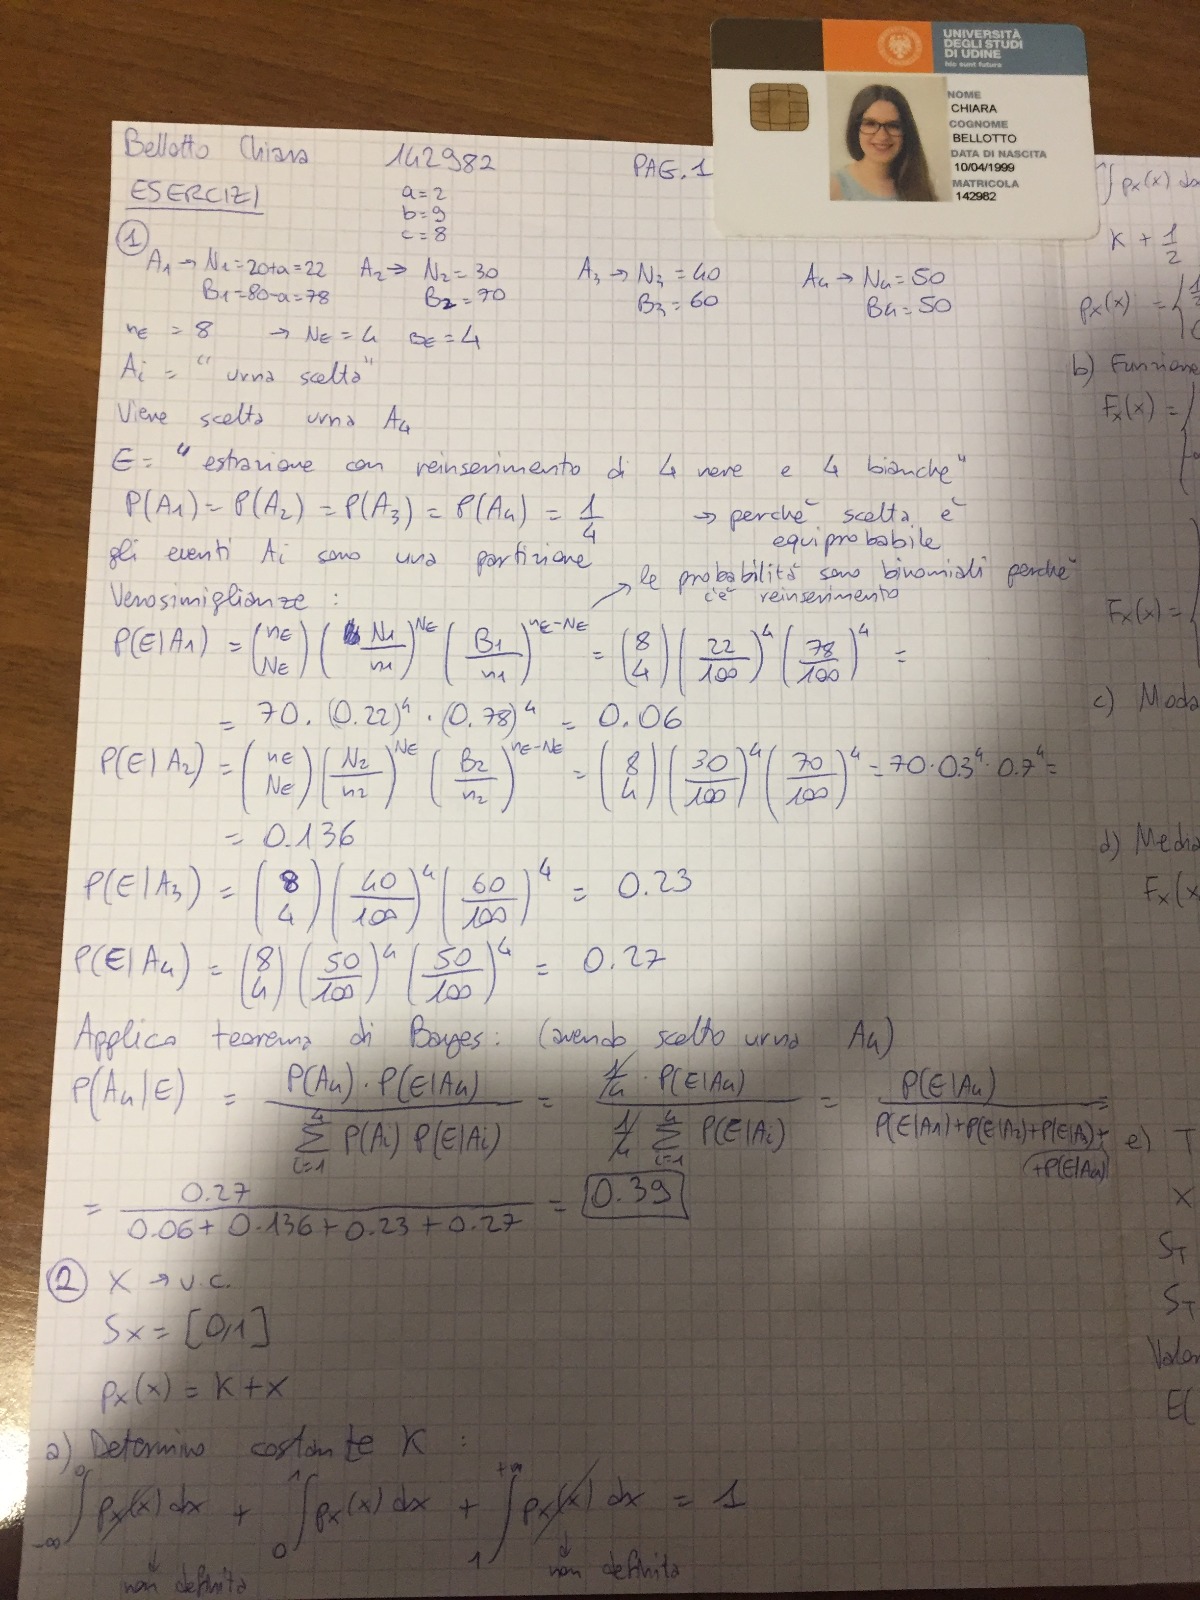 UNIVERSITÀ
DEGLI STUDI
DI UDINE
hic sunt futura
NOME
CHIARA
COGNOME
BELLOTTO
DATA DI NASCITA
10/04/1999
MATRICOLA
142982
Bellotto Chiara 142982 PAG.1
ESERCIZI
a=2
b=9
c=8
1
A1 → N1=20+a=22 A2 → N2=30 A3 → N3=40 A4 → N4=50
B1=80-a=78 B2=70 B3=60 B4=50
nE = 8 → NE=4 BE=4
Ai = "urna scelta"
Viene scelta urna A4
E = "estrazione con reinserimento di 4 nere e 4 bianche"
P(A1) = P(A2) = P(A3) = P(A4) = 1/4 → perché scelta è
equiprobabile
gli eventi Ai sono una partizione
→ le probabilità sono binomiali perché
c'è reinserimento
Verosimiglianze :
P(E|A1) = (nE NE) (N1/n1)^NE (B1/n1)^nE-NE = (8 4) (22/100)^4 (78/100)^4 =
= 70 · (0.22)^4 · (0.78)^4 = 0.06
P(E|A2) = (nE NE) (N2/n2)^NE (B2/n2)^nE-NE = (8 4) (30/100)^4 (70/100)^4 = 70·0.3^4·0.7^4 =
= 0.136
P(E|A3) = (8 4) (40/100)^4 (60/100)^4 = 0.23
P(E|A4) = (8 4) (50/100)^4 (50/100)^4 = 0.27
Applico teorema di Bayes: (avendo scelto urna A4)
P(A4|E) = P(A4)·P(E|A4) / Σ i=1 4 P(Ai) P(E|Ai) = 1/4 · P(E|A4) / 1/4 Σ i=1 4 P(E|Ai) = P(E|A4) / P(E|A1)+P(E|A2)+P(E|A3)+
+P(E|A4) =
= 0.27 / 0.06+0.136+0.23+0.27 = 0.39
2 X → v.c.
Sx = [0,1]
px(x) = K+x
a) Determino costante K :
∫ -∞ 0 px(x) dx + ∫ 0 1 px(x) dx + ∫ 1 +∞ px(x) dx = 1
non definita non definita
∫ px(x) dx
K + 1/2
px(x) = {
b) Funzione
Fx(x) = {
Fx(x) = {
c) Moda
d) Media
Fx(x
e) T
X
ST
ST
Valor
E(